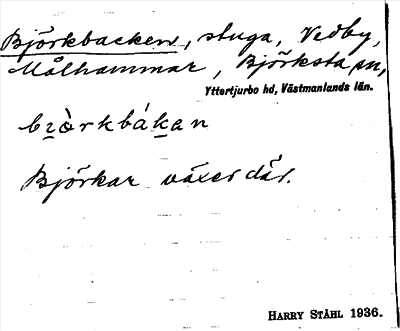 Björkbacken, stuga, Vedby,
Målhammar, Björksta sn,
Yttertjurbo hd, Västmanlands län.
bi̯ö̀rkbákan
Björkar växer där.
HARRY STÅHL 1936.